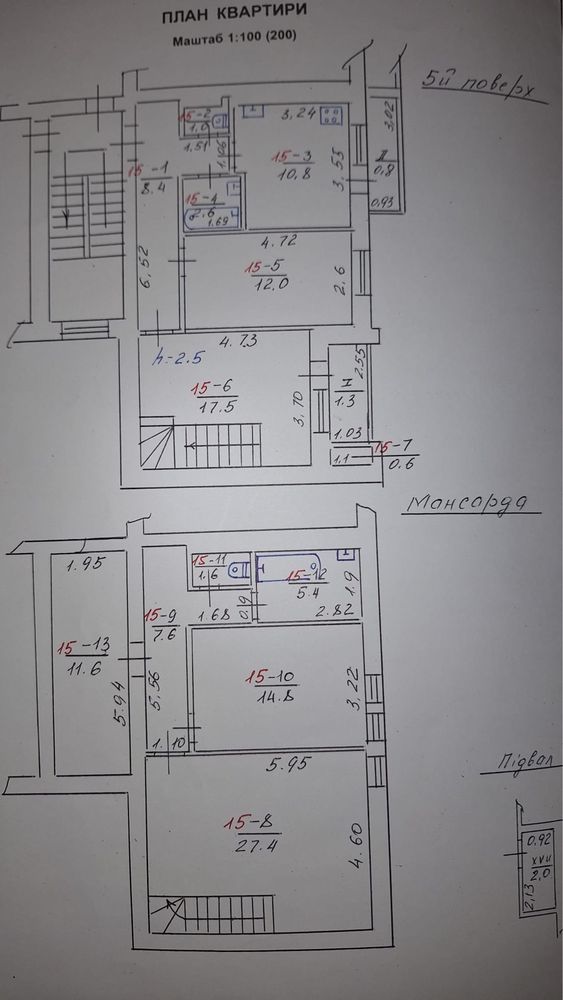 ПЛАН КВАРТИРИ
Маштаб 1:100 (200)
5й поверх
15-2
1.0
1.51
1.06
3,24
15-3
10.8
3,55
3,02
II
0,8
0,93
15-1
8.4
15-4
2.6
1.69
6,52
4.72
15-5
12.0
2.6
h=2.5
4.73
15-6
17.5
3,70
2.55
I
1.3
1.03
1.1
15-7
0.6
Мансарда
1.95
15-13
11.6
5.94
15-9
7.6
5,56
1.10
15-11
1.6
1.68
0,9
15-12
5.4
1.9
2.82
15-10
14.8
3,22
5.95
15-8
27.4
4.60
Підвал
0.92
XVII
2,0
2,13